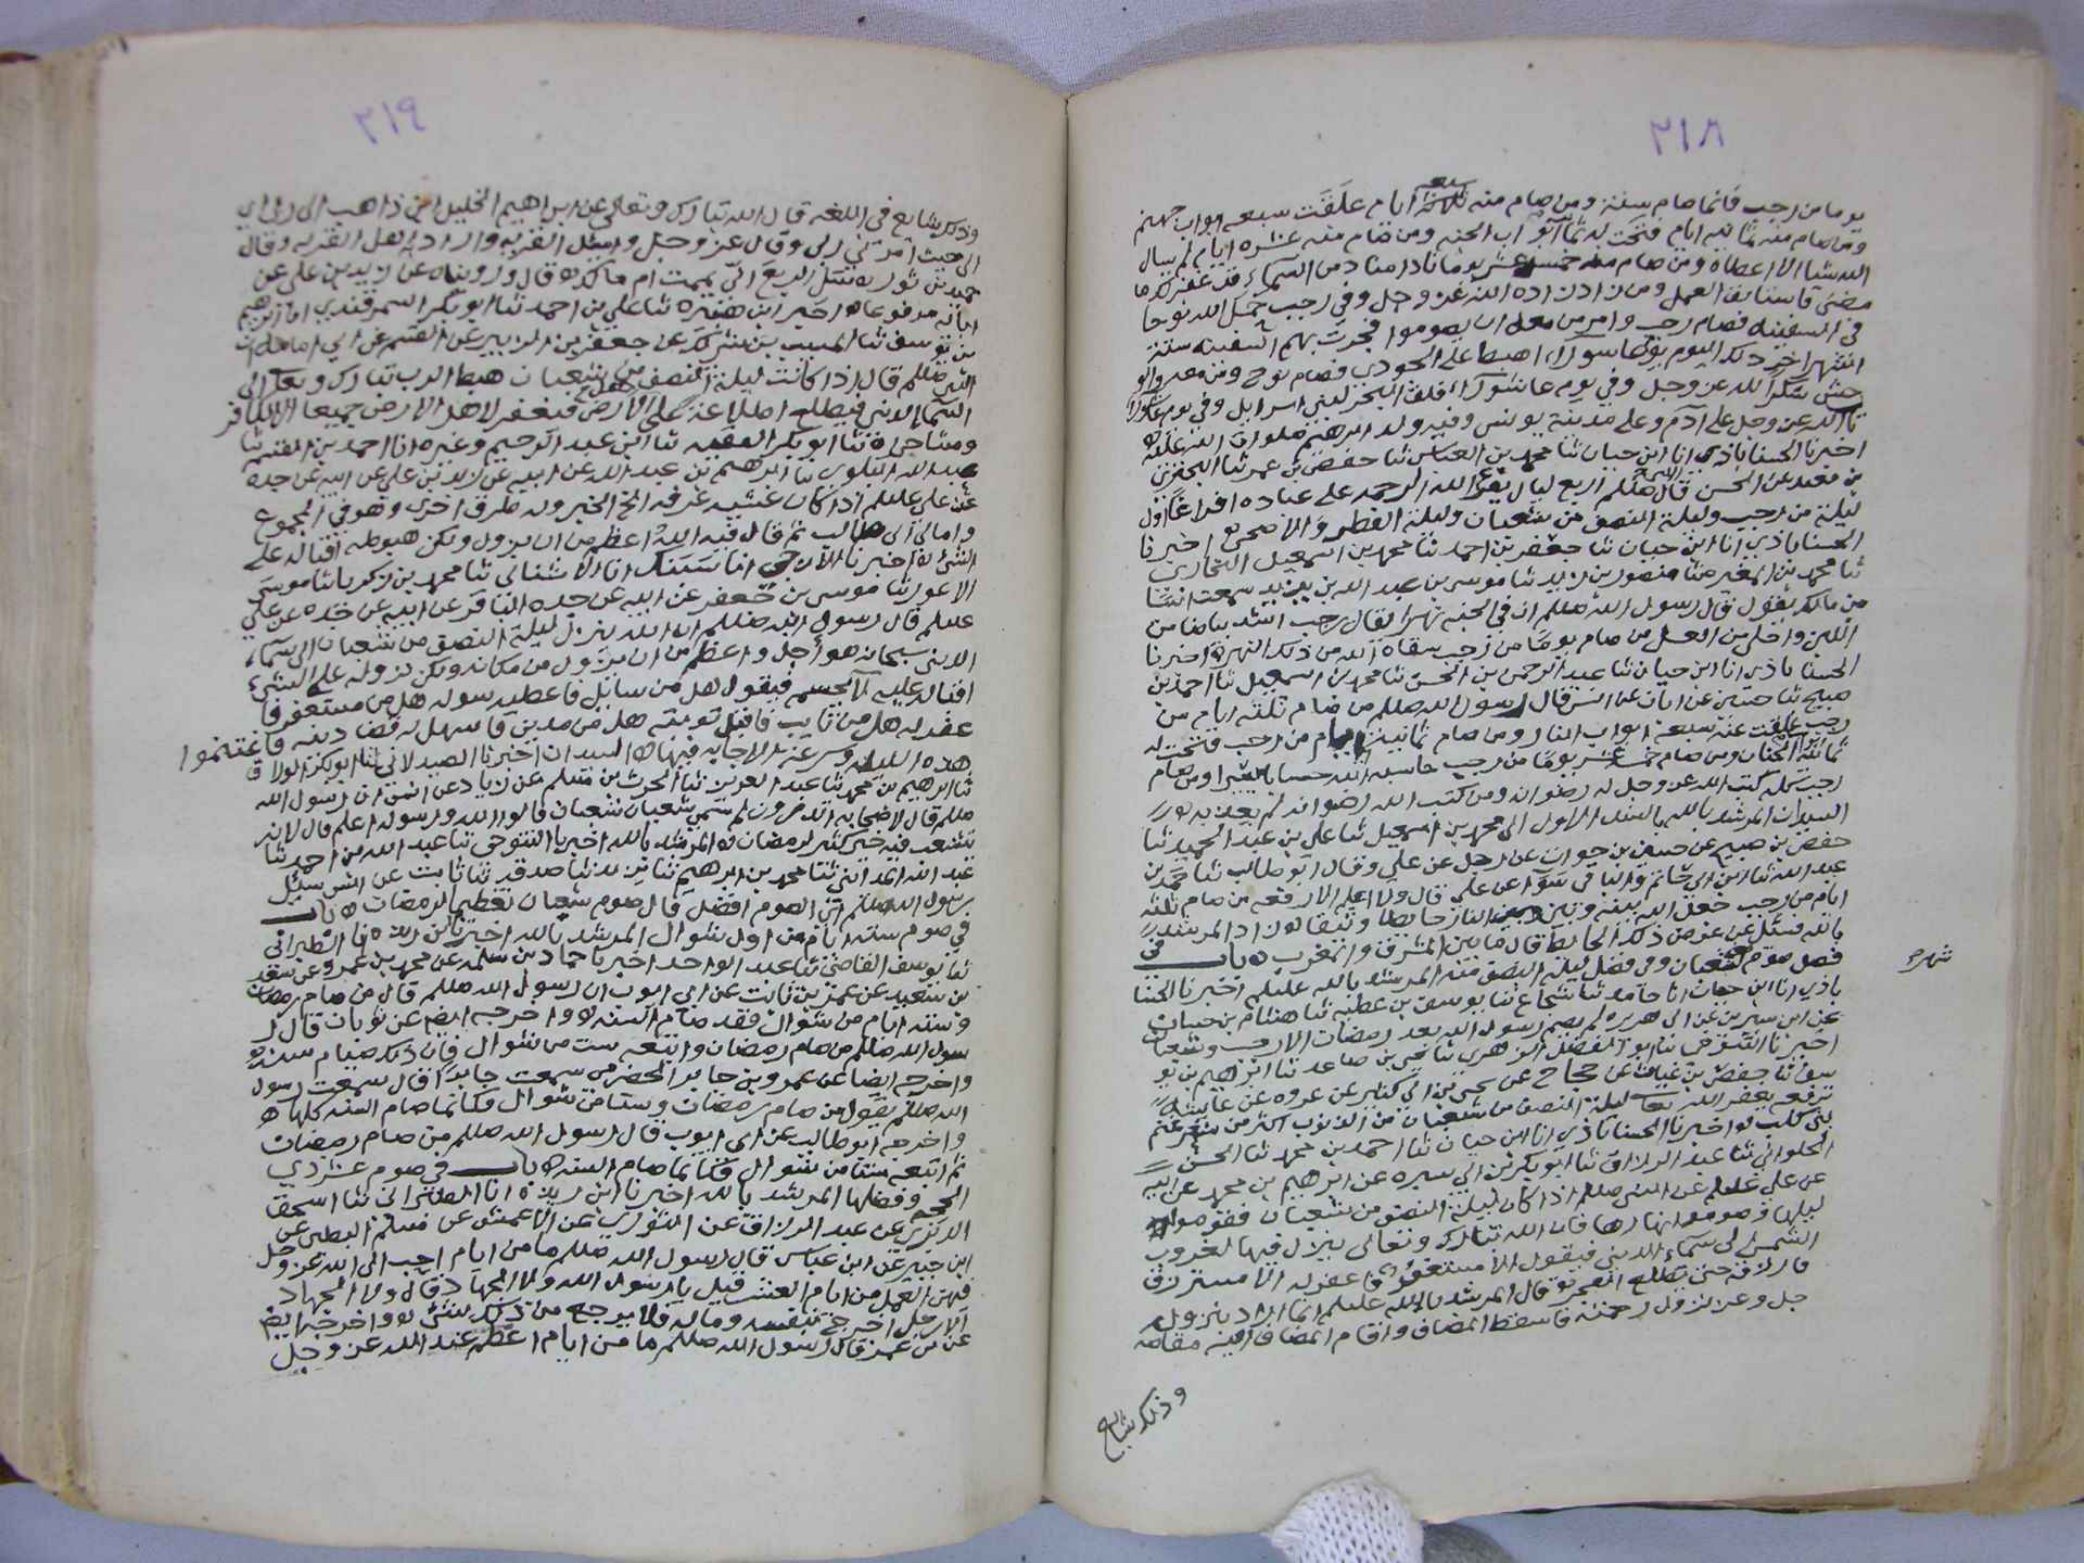 ٢١٨
يوما من رجب فانما صام سنة ومن صام منه سبعة ايام غلقت سبعه ابواب جهنم
ومن صام منه ثمانيه ايام فتحت له ثمانية ابواب الجنه ومن صام منه عشره ايام لم يسال
الله شيا الا اعطاه ومن صام منه خمسة عشر يوما نادا مناد من السماء قد غفر لك ما
مضى فاستانف العمل ومن زاد زاده الله عز وجل وفي رجب حمل الله نوحا
في السفينه فصام رجب وامر من معه ان يصوموا فجرت بهم السفينه ستة
اشهر اخر ذلك اليوم يوم عاشورا اهبط على الجودي فصام نوح ومن معه والو
حش شكرا لله عز وجل وفي يوم عاشورا فلق البحر لبني اسرايل وفي يوم عاشورا
تاب الله عز وجل على ادم وعلى مدينة يونس وفيه ولد ابرهيم صلوات الله عليه
اخبرنا الحسناباذي انا ابن حيان ثنا محمد بن العباس ثنا حفص بن عمر ثنا
بن معبد عن الحسن قال صللم اربع ليال يفرغ الله الرحمه على عباده افراغا اول
ليلة من رجب وليلة النصف من شعبان وليلة الفطر والاضحى اخبرنا
الحسناباذي انا ابن حيان ثنا جعفر بن احمد ثنا محمد بن اسمعيل البخاري
ثنا محمد بن المغيره ثنا منصور بن زيد ثنا موسى بن عبد الله بن يزيد سمعت انسا
بن مالك يقول قال رسول الله صللم ان في الجنه نهرا يقال رجب اشد بياضا من
اللبن واحلى من العسل من صام يوما من رجب سقاه الله من ذلك النهر اخبرنا
الحسناباذي انا ابن حيان ثنا عبد الرحمن بن الحسن ثنا محمد بن اسمعيل ثنا احمد بن
صبيح ثنا حسين عن ابان عن انس قال رسول الله صللم من صام ثلثه ايام من
رجب غلقت عنه سبعة ابواب النار ومن صام ثمانية ايام من رجب فتحت له
ثمانية ابواب الجنان ومن صام خمسة عشر يوما من رجب حاسبه الله حسابا يسيرا ومن صام
رجب كله كتب الله عز وجل له رضوانه ومن كتب الله رضوانه لم يعذبه
السيدان المرشد بالله بالسند الاول الى محمد بن اسمعيل ثنا علي بن عبد الحميد ثنا
حفص بن صبيح عن حسين بن جوان عن رجل عن علي وقال ابو طالب ثنا حمد بن
عبد الله ثنا ابن ابي حاتم والباقي سوا عن علي قال ولا اعلم الا رفعه من صام ثلثه
ايام من رجب جعل الله بينه وبين النار حايطا زاد المرشد
بالله فسئل عن عرض ذلك الحايط قال ما بين المشرق والمغرب باب في
فضل صوم شعبان وفي فضل ليلة النصف منه المرشد بالله عليلم اخبرنا الحسنا
باذي انا ابن حيان انا حامد ثنا شجاع ثنا يوسف بن عطيه ثنا هشام بن حسان
عن ابن سيرين عن ابي هريره لم يصم رسول الله بعد رمضان الا رجب وشعبان
اخبرنا التنوخي ثنا ابو الفضل الزهري ثنا يحيى بن صاعد ثنا ابراهيم بن يو
سف ثنا حفص بن غياث عن حجاج عن يحيى بن ابي كثير عن عروه عن عايشه
ترفعه يغفر الله تعا ليلة النصف من شعبان من الذنوب اكثر من شعر غنم
بني كلب اخبرنا الحسناباذي انا ابن حيان ثنا احمد بن محمد ثنا الحسن
الحلواني ثنا عبد الرزاق ثنا ابو بكر بن ابي سبره عن ابرهيم بن محمد عن ابيه
عن علي عليلم عن النبي صللم اذا كان ليلة النصف من شعبان فقوموا
ليلها وصوموا نهارها فان الله تبارك وتعالى ينزل فيها لغروب
الشمس الى سماء الدنيا فيقول الا مستغفر فاغفر له الا مسترزق
فارزقه حتى يطلع الفجر قال المرشد بالله عليلم انما اراد بنزوله
جل وعز نزول رحمته فاسقط المضاف واقام المضاف اليه مقامه
وذلك شايع
شهر
٢١٩
وذلك شايع في اللغه قال الله تبارك وتعالى عن ابراهيم الخليل اني ذاهب الى ربي اي
الى حيث امرني ربي وقال عز وجل واسئل القريه واراد اهل القريه وقال
حميد بن ثور قال وروينا عن زيد بن علي عن
ابائه مرفوعا اخبر ابن ثنا علي بن احمد ثنا ابو بكر السمرقندي انا ابرهيم
بن يوسف ثنا المسيب بن شريك عن جعفر بن الزبير عن القسم عن ابي امامه ان
النبي صللم قال اذا كانت ليلة النصف من شعبان هبط الرب تبارك وتعالى الى
السماء الدنيا فيطلع اطلاعة على اهل الارض فيغفر لاهل الارض جميعا الا الكافر
ومشاحن ثنا ابو بكر الفقيه ثنا ابن عبد الرحيم وغيره انا احمد بن القسم ثنا
عبد الله البلوي ثنا ابرهيم بن عبد الله عن ابيه عن زيد بن علي عن ابيه عن جده
عن علي عليلم اذا كان عشيه عرفه الخ الخبر وله طرق اخرى وهو في المجموع
وامالي ابي طالب ثم قال فيه الله اعظم من ان يزول ولكن هبوطه اقباله على
الشي اخبرنا الازجي انا سنبك انا الاشناني ثنا محمد بن زكريا ثنا موسى
الاعور ثنا موسى بن جعفر عن ابيه عن جده الباقر عن ابيه عن جده عن علي
عليلم قال رسول الله صللم ان الله ينزل ليلة النصف من شعبان الى سماء
الدنيا سبحانه هو اجل واعظم من ان يزول من مكانه ولكن نزوله على الشيء
اقباله عليه لا بجسم فيقول هل من سايل فاعطيه سوله هل من مستغفر فا
غفر له هل من تايب فاقبل توبته هل من مدين فاسهل له قضا دينه فاغتنموا
هذه الليله وسرعة الاجابه فيها السيدان اخبرنا الصيدلاني
ثنا ابرهيم بن محمد ثنا عبد العزيز ثنا الحرث بن مسلم عن زياد عن انس ان رسول الله
صللم قال لاصحابه اتدرون لم سمي شعبان شعبان قالوا الله ورسوله اعلم قال لانه
يتشعب فيه خير كثير لرمضان المرشد بالله اخبرنا التنوخي ثنا عبد الله بن احمد ثنا
عبد الله المدايني ثنا محمد بن ابرهيم ثنا يزيد ثنا صدقه ثنا ثابت عن انس سئل
رسول الله صللم اي الصوم افضل قال صوم شعبان تعظيما لرمضان باب
في صوم سته ايام من اول شوال المرشد بالله اخبرنا ابن ريذه انا الطبراني
ثنا يوسف القاضي ثنا عبد الواحد اخبرنا حماد بن سلمه عن محمد بن عمرو عن سعد
بن سعيد عن عمر بن ثابت عن ابي ايوب ان رسول الله صللم قال من صام رمضان
وسته ايام من شوال فقد صام السنه واخرجه ايضا عن ثوبان قال ر
سول الله صللم من صام رمضان واتبعه ست من شوال فان ذلك صيام سنه
واخرجه ايضا عن عمرو بن جابر الحضرمي سمعت جابرا قال سمعت رسول
الله صللم يقول من صام رمضان وستا من شوال فكانما صام السنه كلها
واخرجه ابو طالب عن ابي ايوب قال رسول الله صللم من صام رمضان
ثم اتبعه ستا من شوال فكانما صام السنه باب في صوم عشر ذي
الحجه وفضلها المرشد بالله اخبرنا ابن ريذه انا الطبراني ثنا اسحق
الدبري عن عبد الرزاق عن الثوري عن الاعمش عن مسلم البطين عن
ابن جبير عن ابن عباس قال رسول الله صللم ما من ايام احب الى الله عز وجل
فيهن العمل من ايام العشر قيل يا رسول الله ولا الجهاد قال ولا الجهاد
الا رجل اخرج بنفسه وماله فلا يرجع من ذلك بشيء واخرجه ايضا
عن بن عمر قال رسول الله صللم ما من ايام اعظم عند الله عز وجل